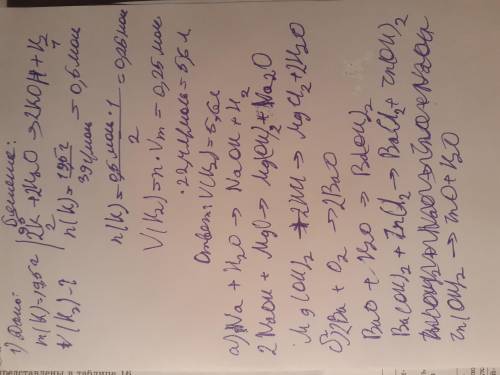 1) Дано: Решение:
m(K)=19,5г | 2K+2H2O → 2KOH+H2↑
V(H2)-?
n(K)= 19,5г / 39г/моль = 0,5моль
n(H)= 0,5 моль·1 / 2 = 0,25моль
V(H2)=n·Vm = 0,25моль
·22,4л/моль=5,6л
Ответ: V(H2)=5,6л
а) Na + H2O → NaOH + H2
2NaOH + MgO → Mg(OH)2 + Na2O
Mg(OH)2 + 2HCl → MgCl2 + 2H2O
б) 2Ba + O2 → 2BaO
BaO + H2O → Ba(OH)2
Ba(OH)2 + ZnCl2 → BaCl2 + Zn(OH)2
Zn(OH)2 → ZnO + H2O
представлены в таблице 16